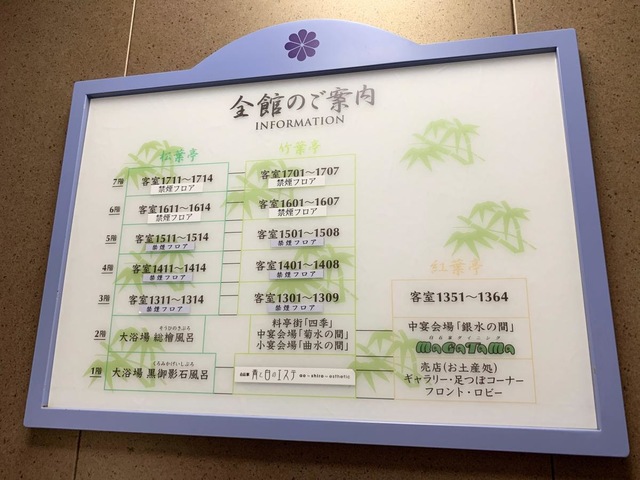 全館のご案内
INFORMATION
松葉亭 竹葉亭
7階 客室1711～1714 客室1701～1707
禁煙フロア 禁煙フロア
6階 客室1611～1614 客室1601～1607
禁煙フロア 禁煙フロア
5階 客室1511～1514 客室1501～1508
禁煙フロア 禁煙フロア
4階 客室1411～1414 客室1401～1408
禁煙フロア 禁煙フロア
紅葉亭
3階 客室1311～1314 客室1301～1309 客室1351～1364
禁煙フロア 禁煙フロア
2階 大浴場 総檜風呂
そうひのきぶろ
料亭街「四季」
中宴会場「菊水の間」
小宴会場「曲水の間」
中宴会場「銀水の間」
MaGaTaMa
1階 大浴場 黒御影石風呂
くろみかげいしぶろ
青と白のエステ ao＋shiro－esthetic
売店(お土産処)
ギャラリー・足つぼコーナー
フロント・ロビー